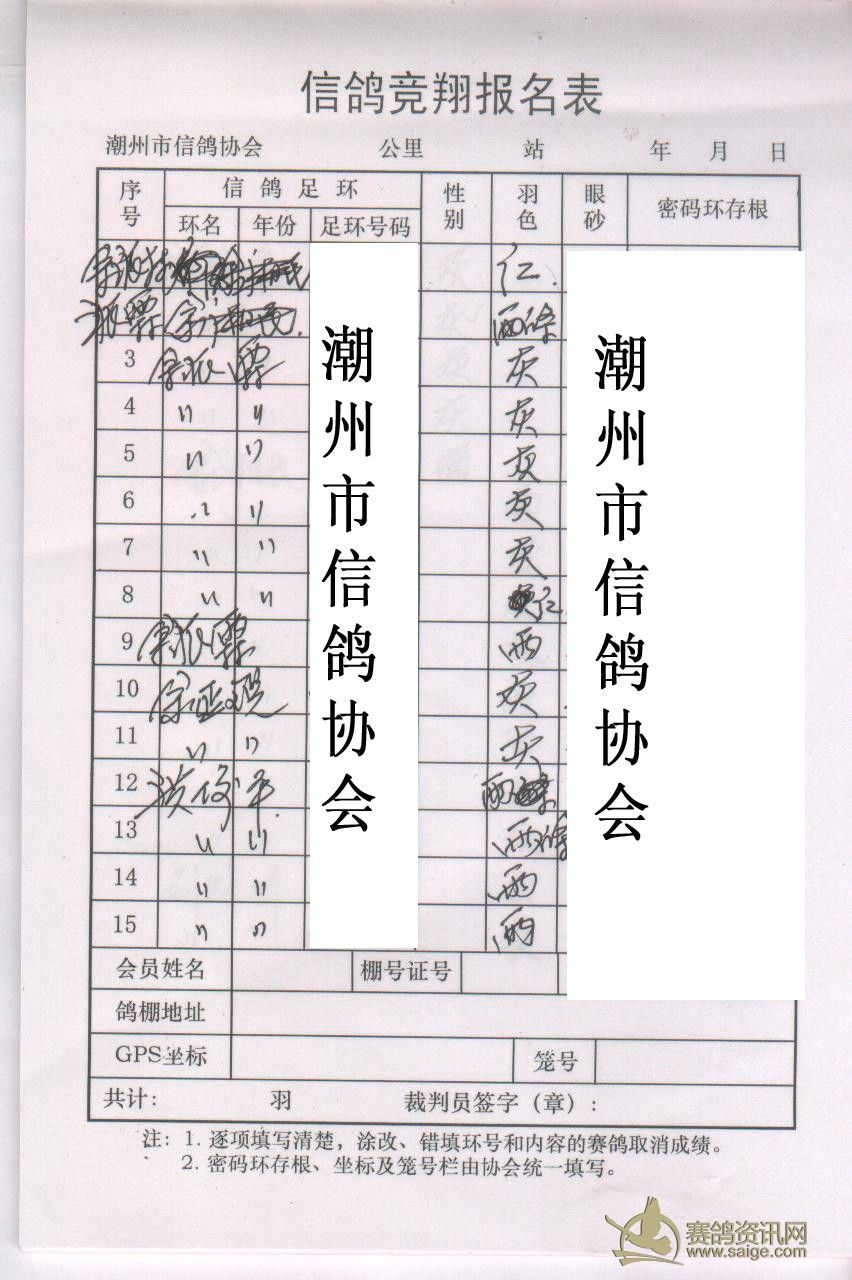 信鸽竞翔报名表
潮州市信鸽协会 公里 站 年 月 日
序号 信鸽足环 性别 羽色 眼砂 密码环存根
环名 年份 足环号码
仁
雨條
3 灰
4 〃 〃 灰
5 〃 〃 灰
6 〃 〃 灰
7 〃 〃 灰
8 〃 〃 仁
9 雨
10 灰
11 〃 〃 灰
12 雨
13 〃 〃 雨條
14 〃 〃 雨
15 〃 〃 雨
潮州市信鸽协会
潮州市信鸽协会
会员姓名 棚号证号
鸽棚地址
GPS坐标 笼号
共计: 羽 裁判员签字（章）:
注: 1. 逐项填写清楚，涂改、错填环号和内容的赛鸽取消成绩。
2. 密码环存根、坐标及笼号栏由协会统一填写。
赛鸽资讯网
www.saige.com